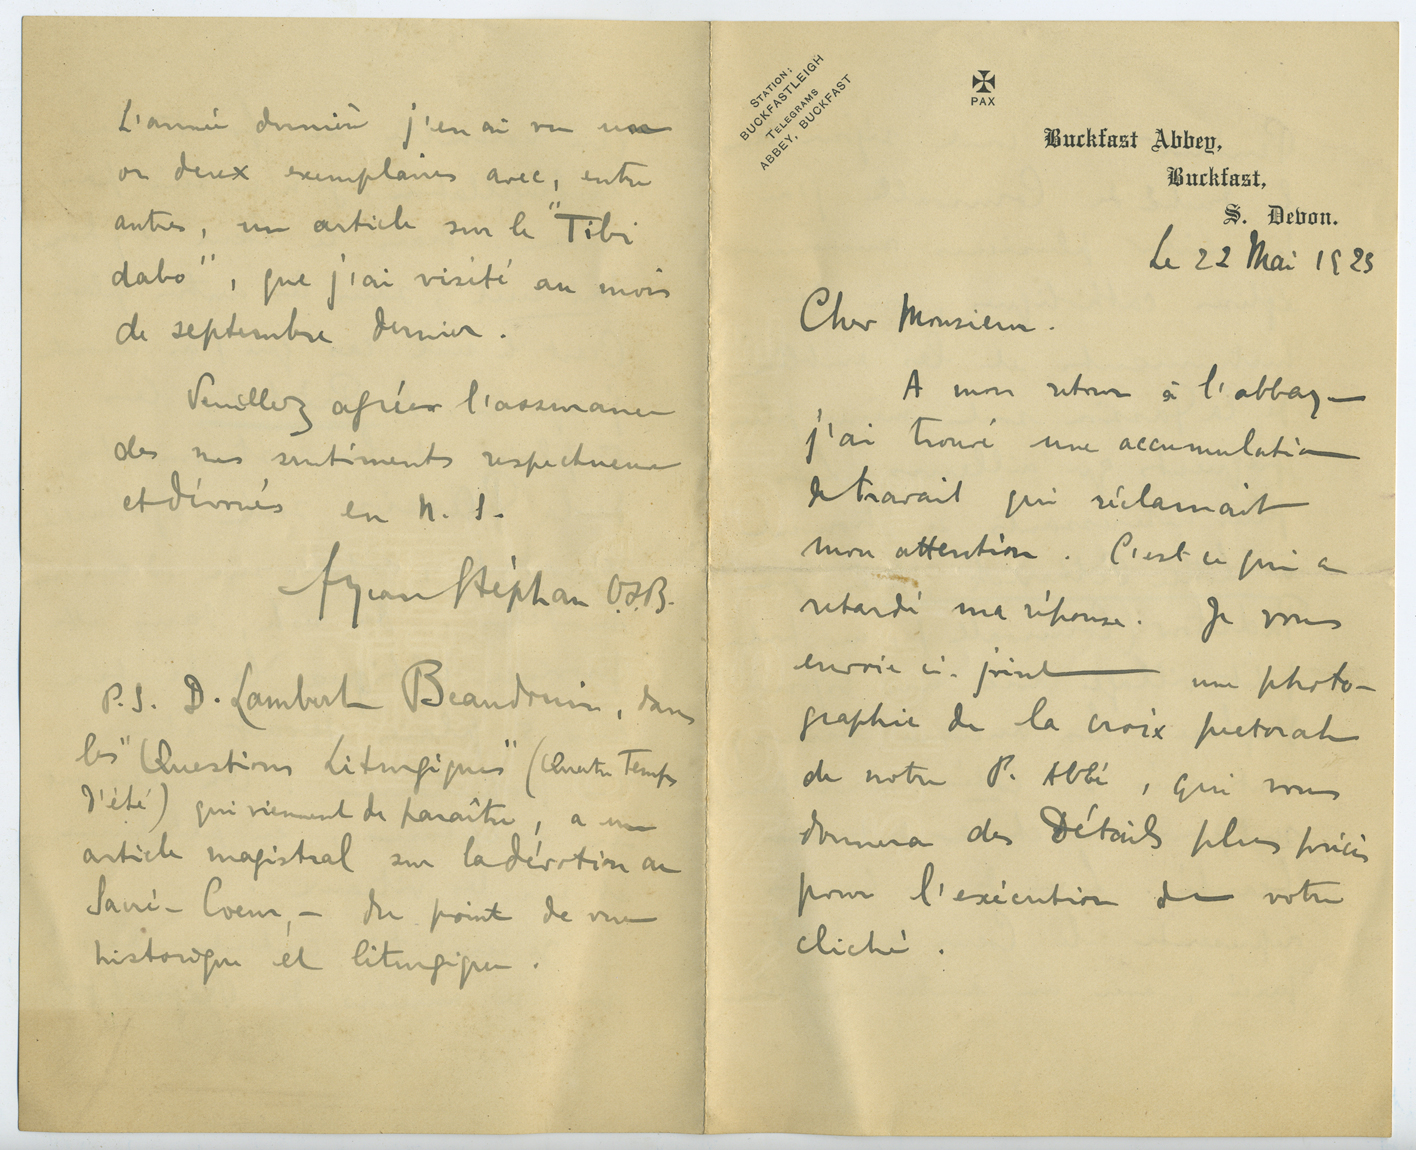 STATION:
BUCKFASTLEIGH
TELEGRAMS
ABBEY, BUCKFAST
PAX
Buckfast Abbey,
Buckfast,
S. Devon.
Le 22 Mai 1923
Cher Monsieur.
A mon retour à l'abbaye
j'ai trouvé une accumulation
de travail qui réclamait
mon attention. C'est ce qui a
retardé ma réponse. Je vous
envoie ci-joint une photo-
graphie de la croix pectorale
de notre P. Abbé, qui vous
donnera des détails plus précis
pour l'exécution de votre
cliché.
L'année dernière j'en ai vu un
ou deux exemplaires avec, entre
autres, un article sur le "Tibi
dabo", que j'ai visité au mois
de septembre dernier.
Veuillez agréer l'assurance
des mes sentiments respectueux
et dévoués en N. S.
Stéphan O.S.B.
P.S. D. Lambert Beauduin, dans
les "Questions Liturgiques" (Quatre Temps
d'été) qui viennent de paraître, a un
article magistral sur la dévotion au
Sacré-Coeur, - du point de vue
historique et liturgique.